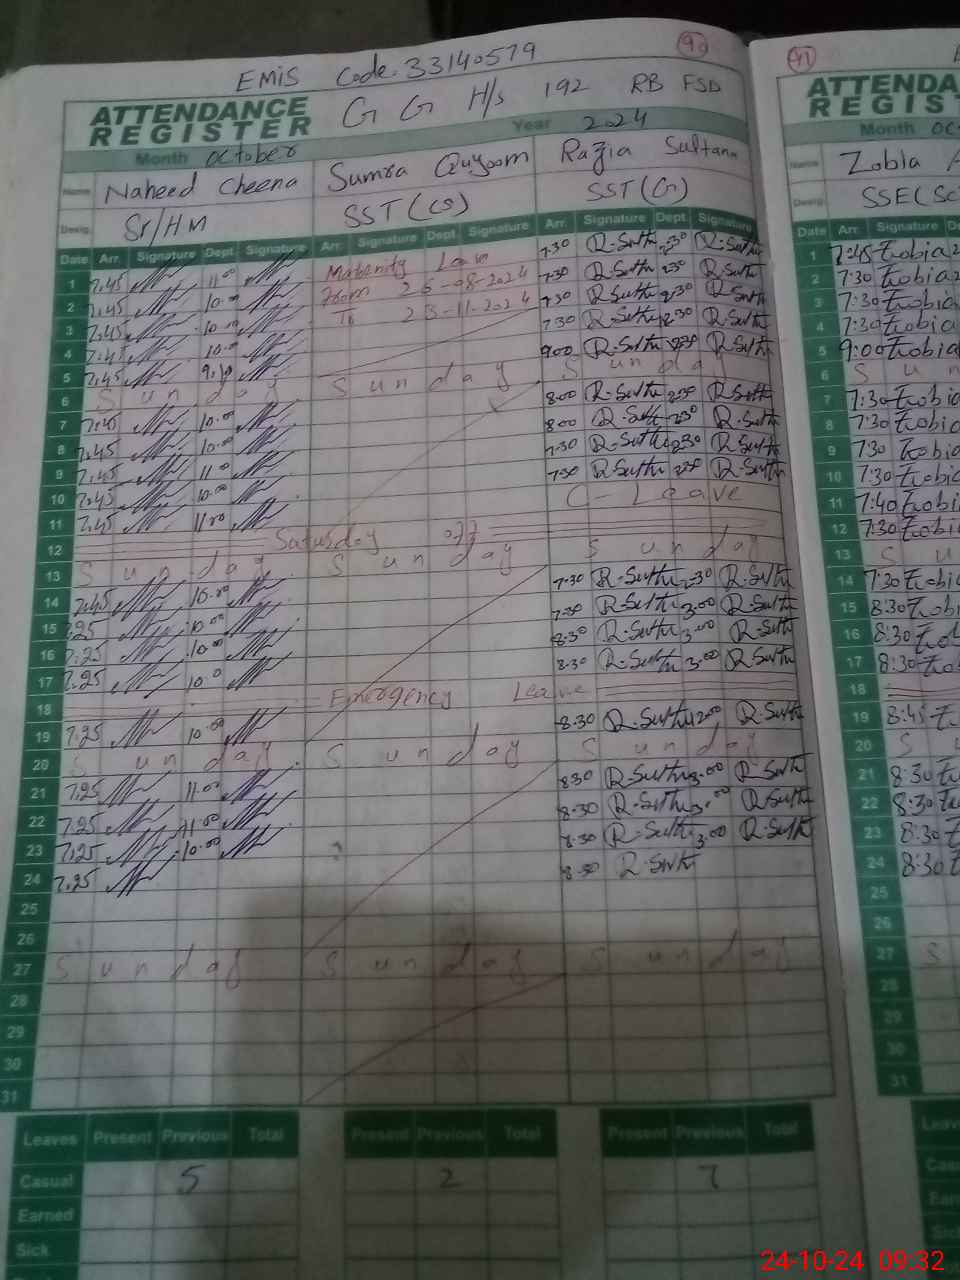 90
EMiS Code. 33140579
ATTENDANCE REGISTER
G G H/s 192 RB FSD
Month October Year 2024
Name Naheed Cheena Sumra Quyoom Razia Sultana
Desig. Sr/HM SST (CS) SST (G)
Date Arr. Signature Dept Signature Arr. Signature Dept. Signature Arr. Signature Dept. Signature
1 7.45 11.00 Maternity Leave 7.30 R.Sulth 2.30 R.Sulth
2 7.45 10.00 from 26-08-2024 7.30 R.Sulth 2.30 R.Sulth
3 7.45 10.00 To 23-11-2024 7.30 R.Sulth 2.30 R.Sulth
4 7.45 10.00 7.30 R.Sulth 2.30 R.Sulth
5 7.45 9.00 R.Sulth R.Sulth
6 Sunday Sunday Sunday
7 7.45 10.00 8.00 R.Sulth R.Sulth
8 7.45 10.00 8.00 R.Sulth 2.30 R.Sulth
9 7.45 11.00 7.30 R.Sulth 2.30 R.Sulth
10 7.45 10.00 7.30 R.Sulth R.Sulth
11 7.45 11.00 C-Leave
12 Saturday off
13 Sunday Sunday Sunday
14 7.45 10.00 7.30 R.Sulth 2.30 R.Sulth
15 7.25 10.00 R.Sulth 3.00 R.Sulth
16 7.25 10.00 8.30 R.Sulth 3.00 R.Sulth
17 7.25 10.0 8.30 R.Sulth 3.00 R.Sulth
18 Emergency Leave
19 7.25 10.00 8.30 R.Sulth 12.00 R.Sulth
20 Sunday Sunday Sunday
21 7.25 11.00 8.30 R.Sulth 3.00 R.Sulth
22 7.25 11.00 8.30 R.Sulth 3.00 R.Sulth
23 7.25 10.00 8.30 R.Sulth 3.00 R.Sulth
24 7.25 8.30 R.Sulth
25
26
27 Sunday Sunday Sunday
28
29
30
31
Leaves Present Previous Total Present Previous Total Present Previous Total
Casual 5 2 7
Earned
Sick
91
ATTENDA
REGIS
Month Oc
Name Zobia
Desig. SSE(Sc
Date Arr. Signature
1 7:45 Zobia
2 7:30 Zobia
3 7:30 Zobia
4 7:30 Zobia
5 9:00 Zobia
6 S u n
7 7:30 Zobia
8 7:30 Zobia
9 7:30 Zobia
10 7:30 Zobia
11 7:40 Zobia
12 7:30 Zobia
13 S u
14 7:30 Zobia
15 8:30 Zobi
16 8:30 Zobia
17 8:30 Zob
18
19 8:45
20 S u
21 8:30
22 8:30
23 8:30
24 8:30
25
26
27 S
28
29
30
31
Leav
Cas
Ear
Sic
24-10-24 09:32